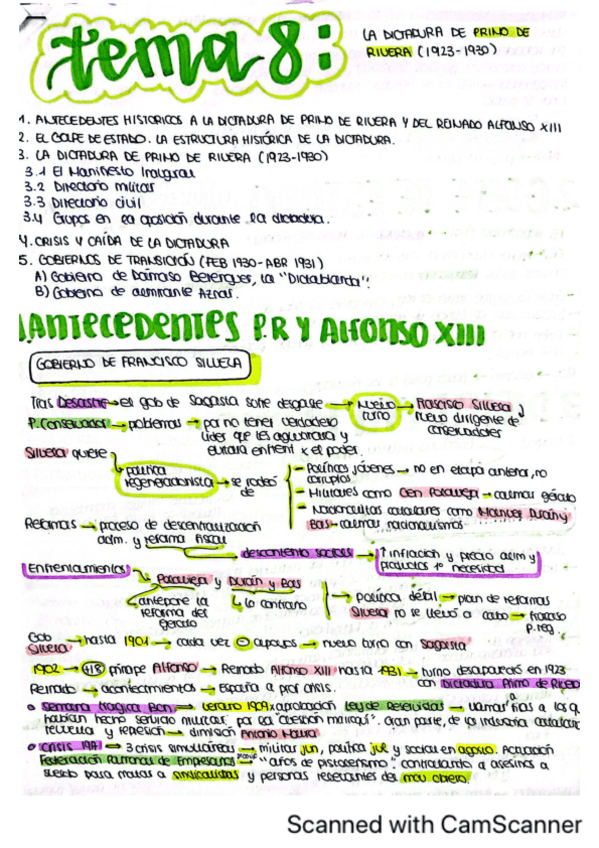 tema 8:
LA DICTADURA DE PRIMO DE
RIVERA (1923-1930)
1. ANTECEDENTES HISTORICOS A LA DICTADURA DE PRIMO DE RIVERA Y DEL REINADO ALFONSO XIII
2. EL GOLPE DE ESTADO. LA ESTRUCTURA HISTÓRICA DE LA DICTADURA.
3. LA DICTADURA DE PRIMO DE RIVERA (1923-1930)
3.1 El Manifiesto Inaugural
3.2 Directorio militar
3.3 Directorio civil
3.4 Grupos en la oposición durante la dictadura.
4. CRISIS Y CAÍDA DE LA DICTADURA
5. GOBIERNOS DE TRANSICIÓN (FEB 1930-ABR 1931)
A) Gobierno de Dámaso Berenguer, la "Dictablanda".
B) Gobierno de almirante Aznar.
1. Antecedentes P.R Y Alfonso XIII
GOBIERNO DE FRANCISCO SILVELA
Tras Desastre → el gob de Sagasta sufre desgaste → Nuevo turno → Francisco Silvela y
nuevo dirigente de conservadores
P. Conservador → problemas → por no tener verdadero
líder que les aglutinara y
evitara enfrent x el poder.
Silvela quiere
política regeneracionista → se rodeó de
- Políticos jóvenes → no en etapa anterior, no corruptos
- Militares como Gen Polavieja → calmar ejército
- Nacionalistas catalanes como Manuel Durán y
Bas → calmar nacionalismos
Reformas → proceso de descentralización
adm. y reforma fiscal
descontento social → ↑ inflación y precio alim y
productos 1º necesidad
Enfrentamientos
Polavieja y Durán y Bas
antepone la reforma del ejército
lo contrario
→ política débil → plan de reformas
Silvela no se llevó a cabo → fracaso
p. reg.
Gob Silvela → hasta 1901 → cada vez - apoyos → nuevo turno con Sagasta.
1902 → +18 príncipe Alfonso → Reinado Alfonso XIII hasta 1931 → turno desapareció en 1923
con Dictadura Primo de River
Reinado → acontecimientos → España a prof crisis.
• Semana trágica Bcn → verano 1909 x aprobación Ley de Reservistas → llamar a filas a los q
habían hecho servicio militar por la "cuestión marroquí". Gran parte, de la industria catalana
revuelta y represión → dimisión Antonio Maura
• CRISIS 1917 → 3 crisis simultáneas → militar jun, política jul y social en agosto. Actuación
Federación Patronal de Empresarios → "años de pistolerismo": contratando a asesinos a
sueldo para matar a sindicalistas y personas relevantes del mov obrero.
Scanned with CamScanner